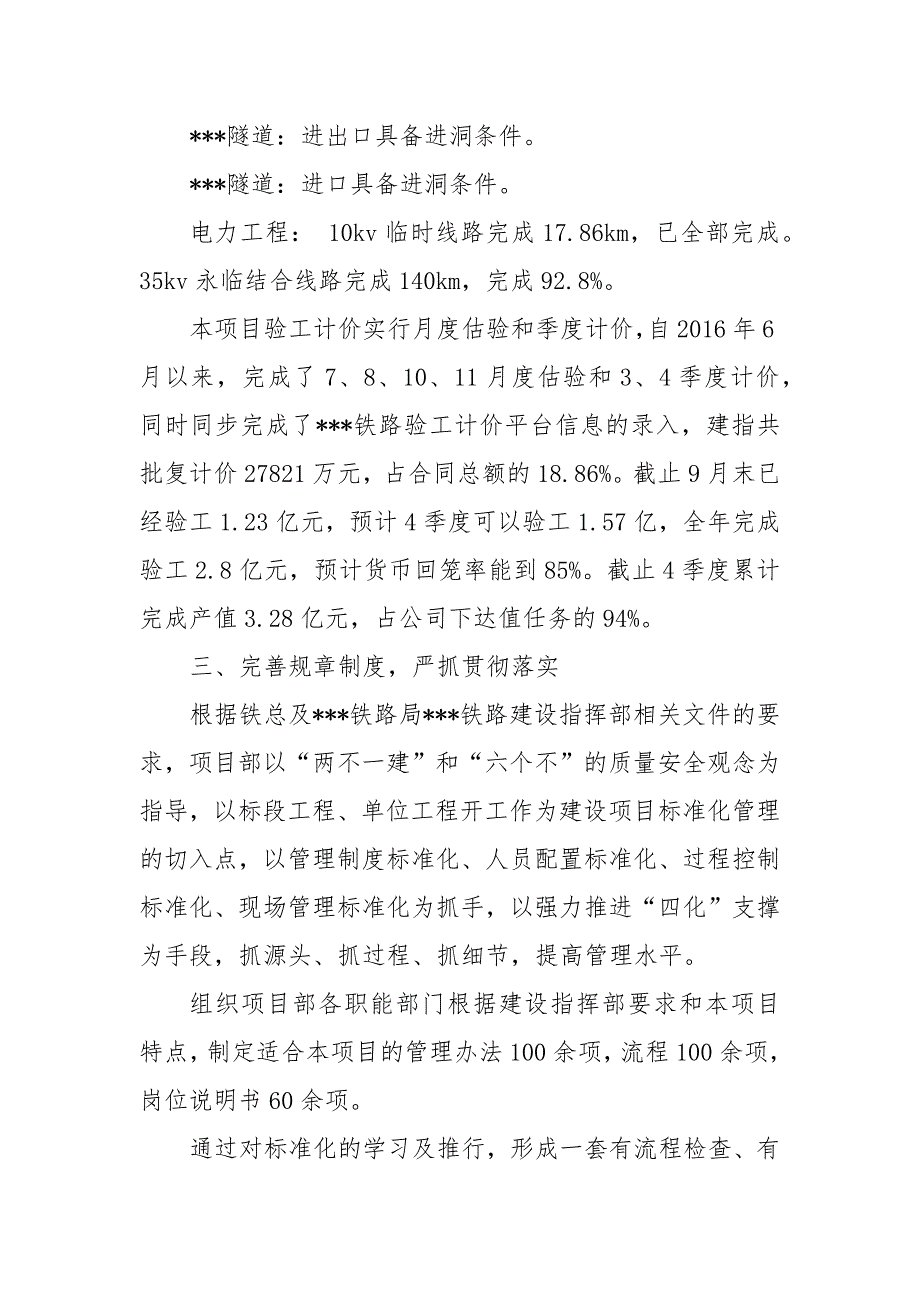 ***隧道：进出口具备进洞条件。
***隧道：进口具备进洞条件。
电力工程： 10kv 临时线路完成 17.86km，已全部完成。
35kv 永临结合线路完成 140km，完成 92.8%。
本项目验工计价实行月度估验和季度计价，自 2016 年 6
月以来，完成了 7、8、10、11 月度估验和 3、4 季度计价，
同时同步完成了***铁路验工计价平台信息的录入，建指共
批复计价 27821 万元，占合同总额的 18.86%。截止 9 月末已
经验工 1.23 亿元，预计 4 季度可以验工 1.57 亿，全年完成
验工 2.8 亿元，预计货币回笼率能到 85%。截止 4 季度累计
完成产值 3.28 亿元，占公司下达值任务的 94%。
三、完善规章制度，严抓贯彻落实
根据铁总及***铁路局***铁路建设指挥部相关文件的要
求，项目部以“两不一建”和“六个不”的质量安全观念为
指导，以标段工程、单位工程开工作为建设项目标准化管理
的切入点，以管理制度标准化、人员配置标准化、过程控制
标准化、现场管理标准化为抓手，以强力推进“四化”支撑
为手段，抓源头、抓过程、抓细节，提高管理水平。
组织项目部各职能部门根据建设指挥部要求和本项目
特点，制定适合本项目的管理办法 100 余项，流程 100 余项，
岗位说明书 60 余项。
通过对标准化的学习及推行，形成一套有流程检查、有